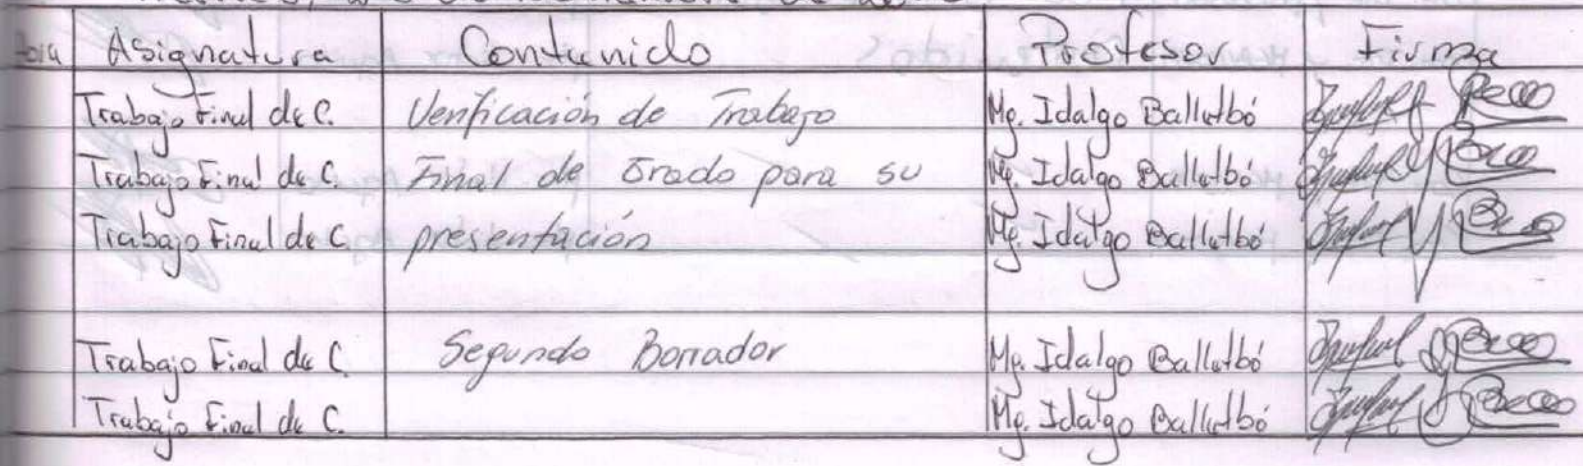 Asignatura Contenido Profesor Firma
Trabajo Final de C. Verificación de Trabajo Mg. Idalgo Ballutbó
Trabajo Final de C. Final de Grado para su Mg. Idalgo Ballutbó
Trabajo Final de C. presentación Mg. Idalgo Ballutbó
Trabajo Final de C. Segundo Borrador Mg. Idalgo Ballutbó
Trabajo Final de C. Mg. Idalgo Ballutbó